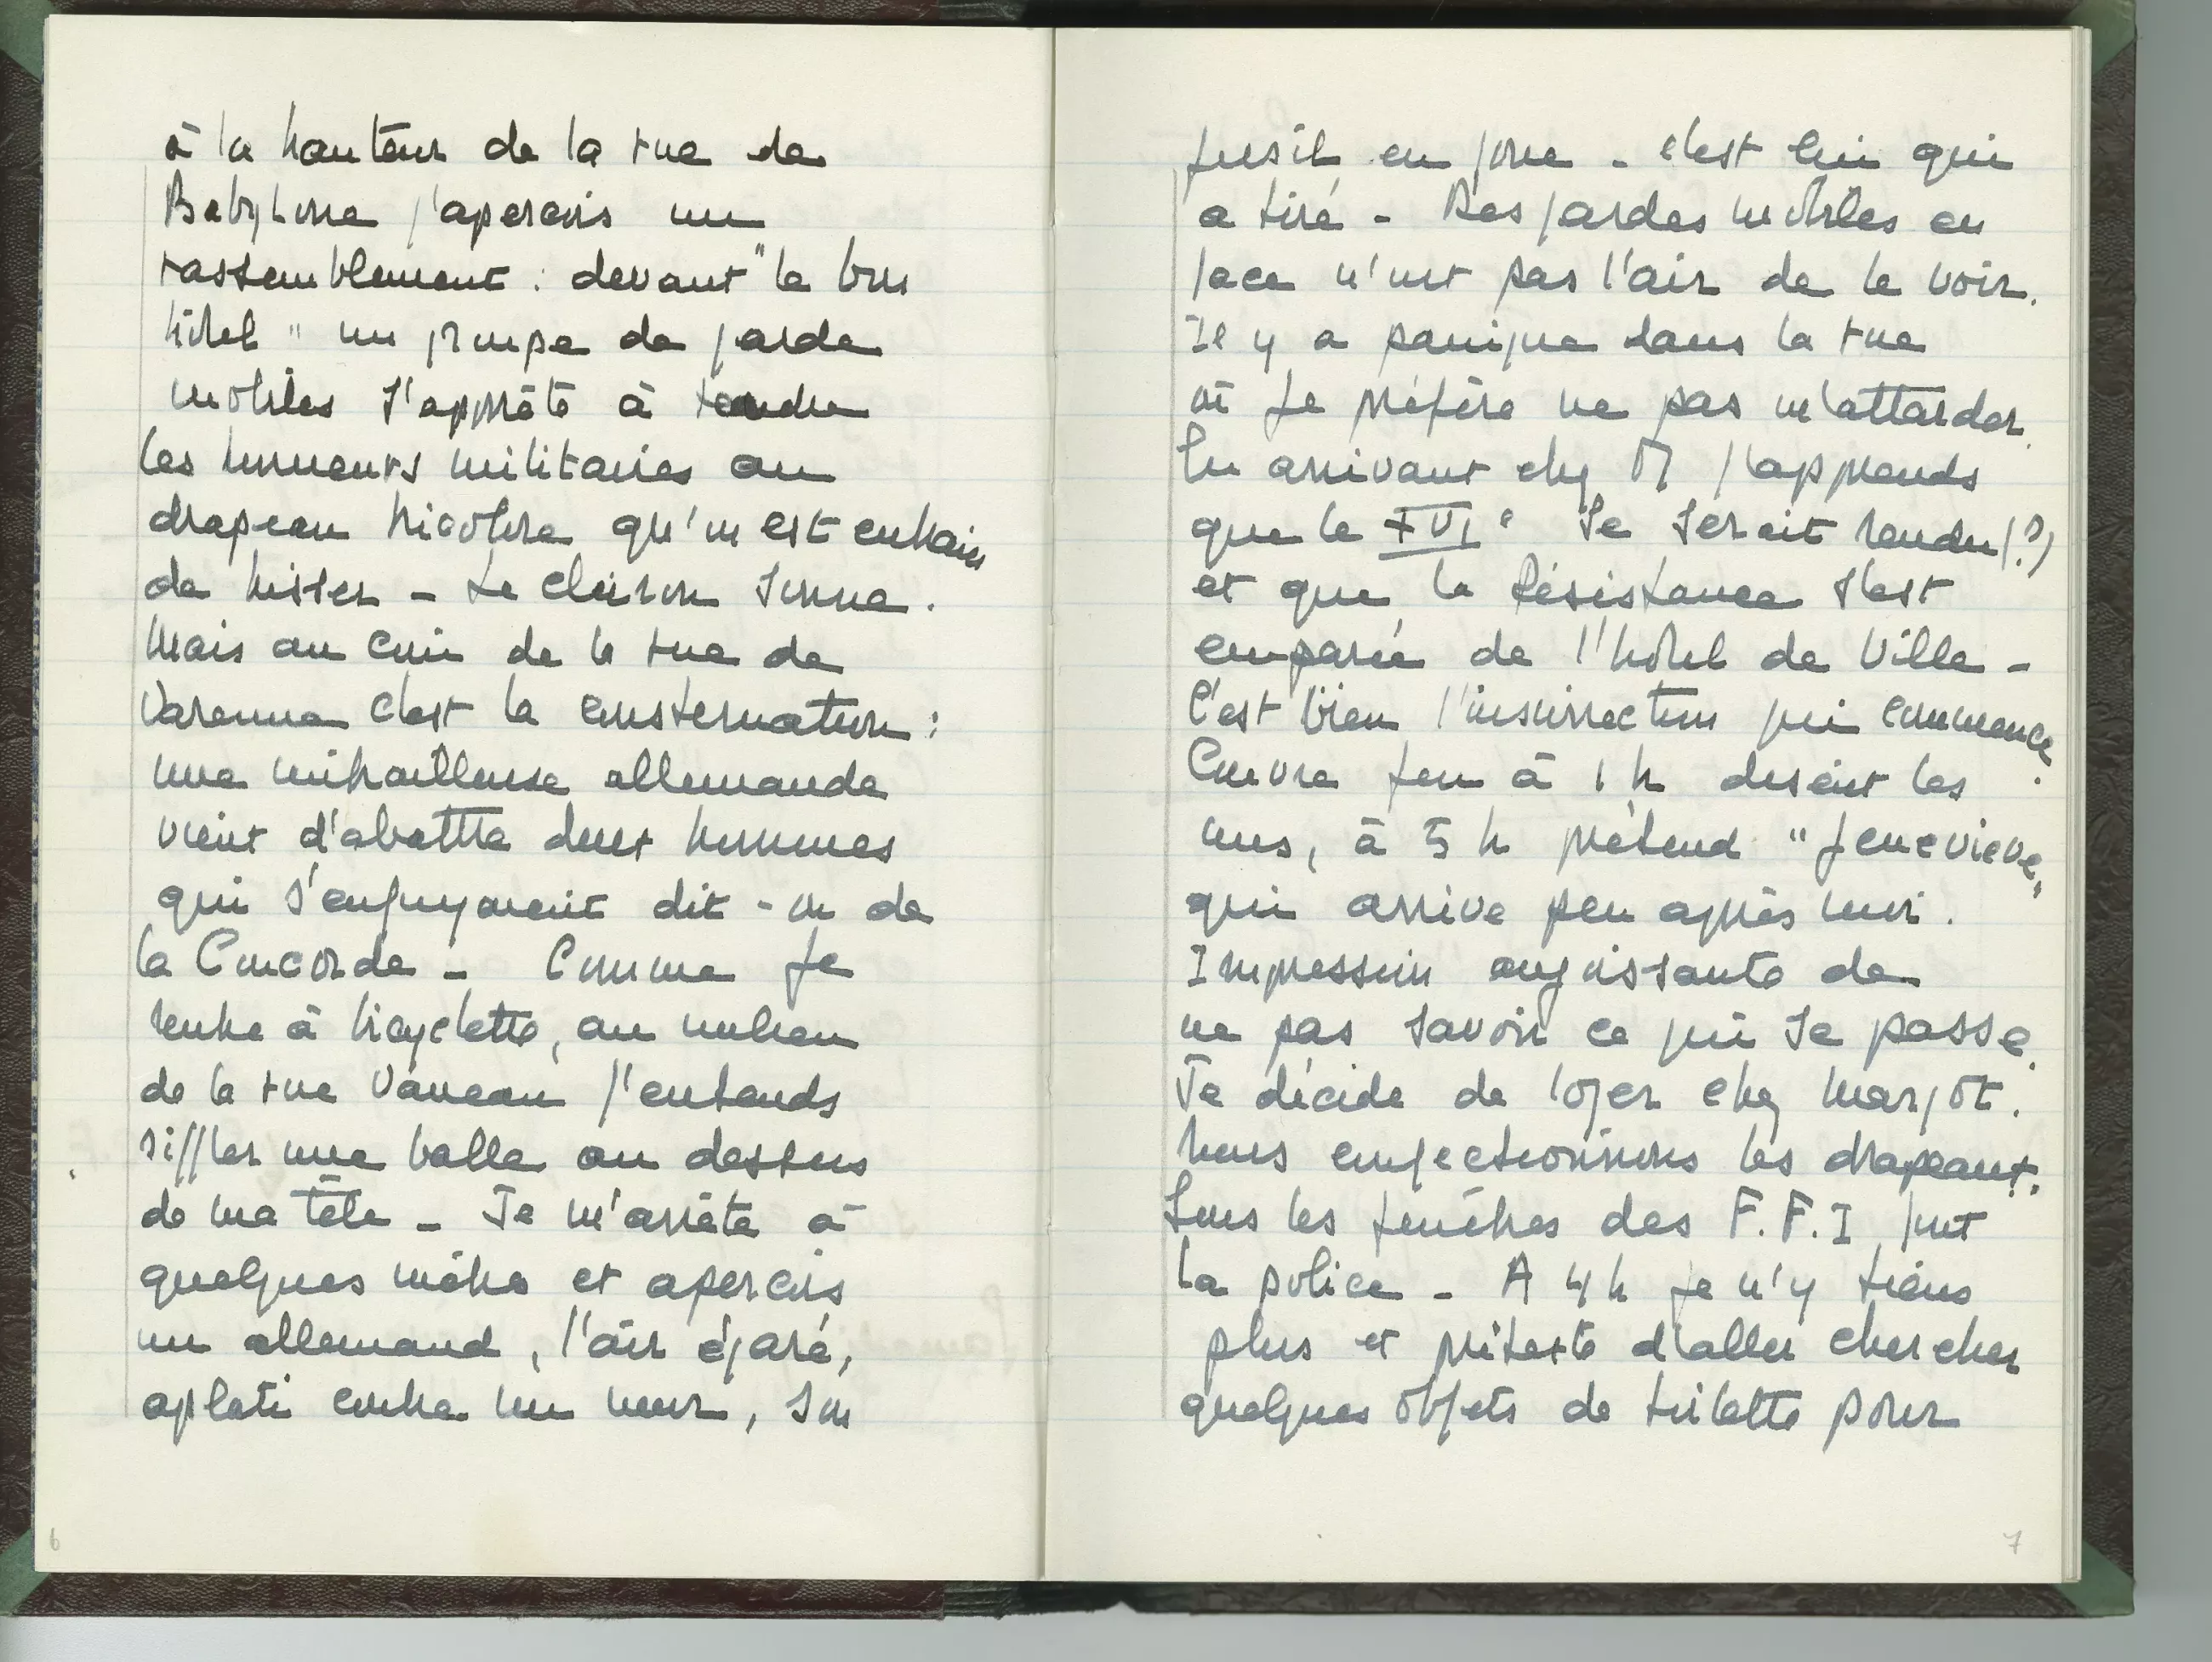 à la hauteur de la rue de
Babylone j'aperçois un
rassemblement : devant "le bon
hôtel" un groupe de garde
mobiles s'apprête à rendre
les honneurs militaires au
drapeau tricolore qu'on est entrain
de hisser - Le clairon sonne.
Mais au coin de la rue de
Varenne c'est la consternation :
une mitrailleuse allemande
vient d'abattre deux hommes
qui s'enfuyaient dit-on de
la Concorde - Comme je
rentre à bicyclette, au milieu
de la rue Vaneau j'entends
siffler une balle au dessus
de ma tête - Je m'arrête à
quelques mètres et aperçois
un allemand, l'air égaré,
aplati contre un mur, son
6
fusil en joue - c'est lui qui
a tiré - Des gardes mobiles en
face n'ont pas l'air de le voir.
Il y a panique dans la rue
où je préfère ne pas m'attarder.
En arrivant chez M j'apprends
que le XVIe se serait rendu (?)
et que la Résistance s'est
emparée de l'hôtel de Ville -
C'est bien l'insurrection qui commence.
Couvre feu à 1 h disent les
uns, à 5 h prétend "Geneviève"
qui arrive peu après moi.
Impression angoissante de
ne pas savoir ce qui se passe.
Je décide de loger chez Margot.
Nous confectionnons les drapeaux.
Sous les fenêtres des F.F.I font
la police - A 4 h je n'y tiens
plus et prétexte d'aller chercher
quelques objets de toilette pour
7